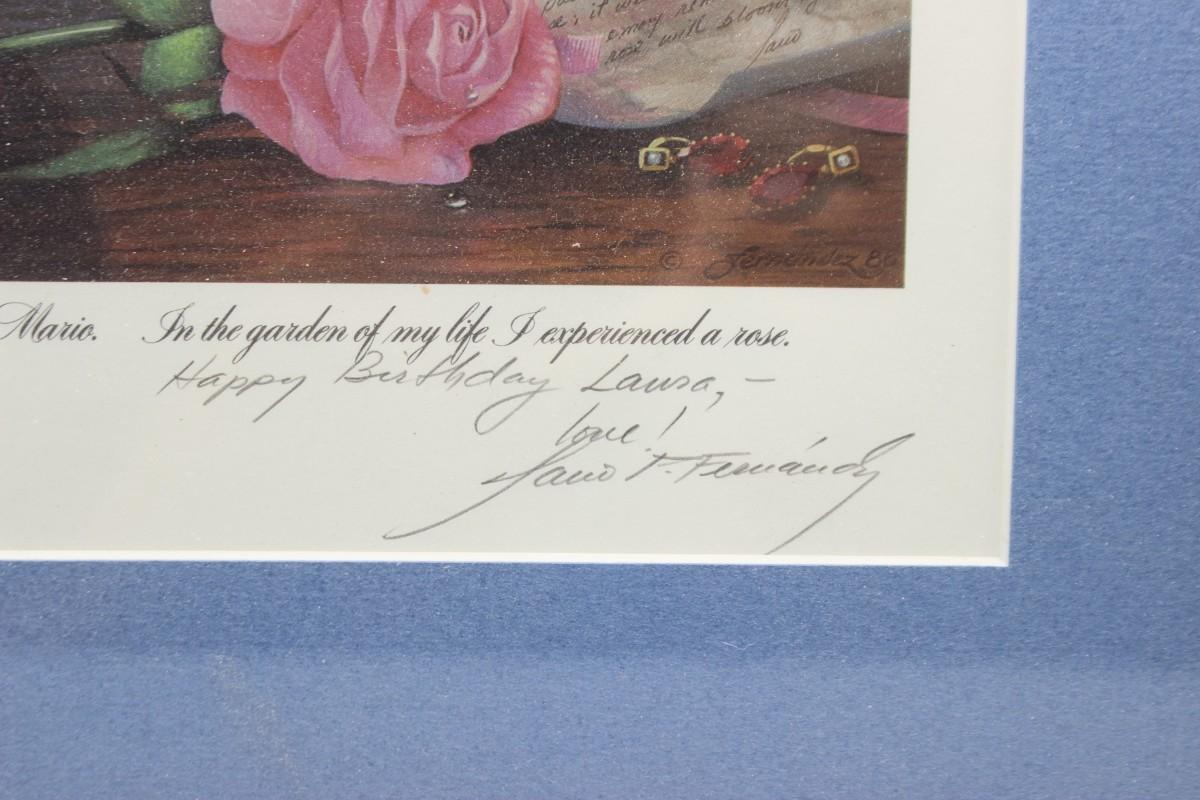 se; it w
emory
rose will bloom
Jano
© Fernández 8
Mario. In the garden of my life I experienced a rose.
Happy Birthday Laura, –
love!
Jano F. Fernández